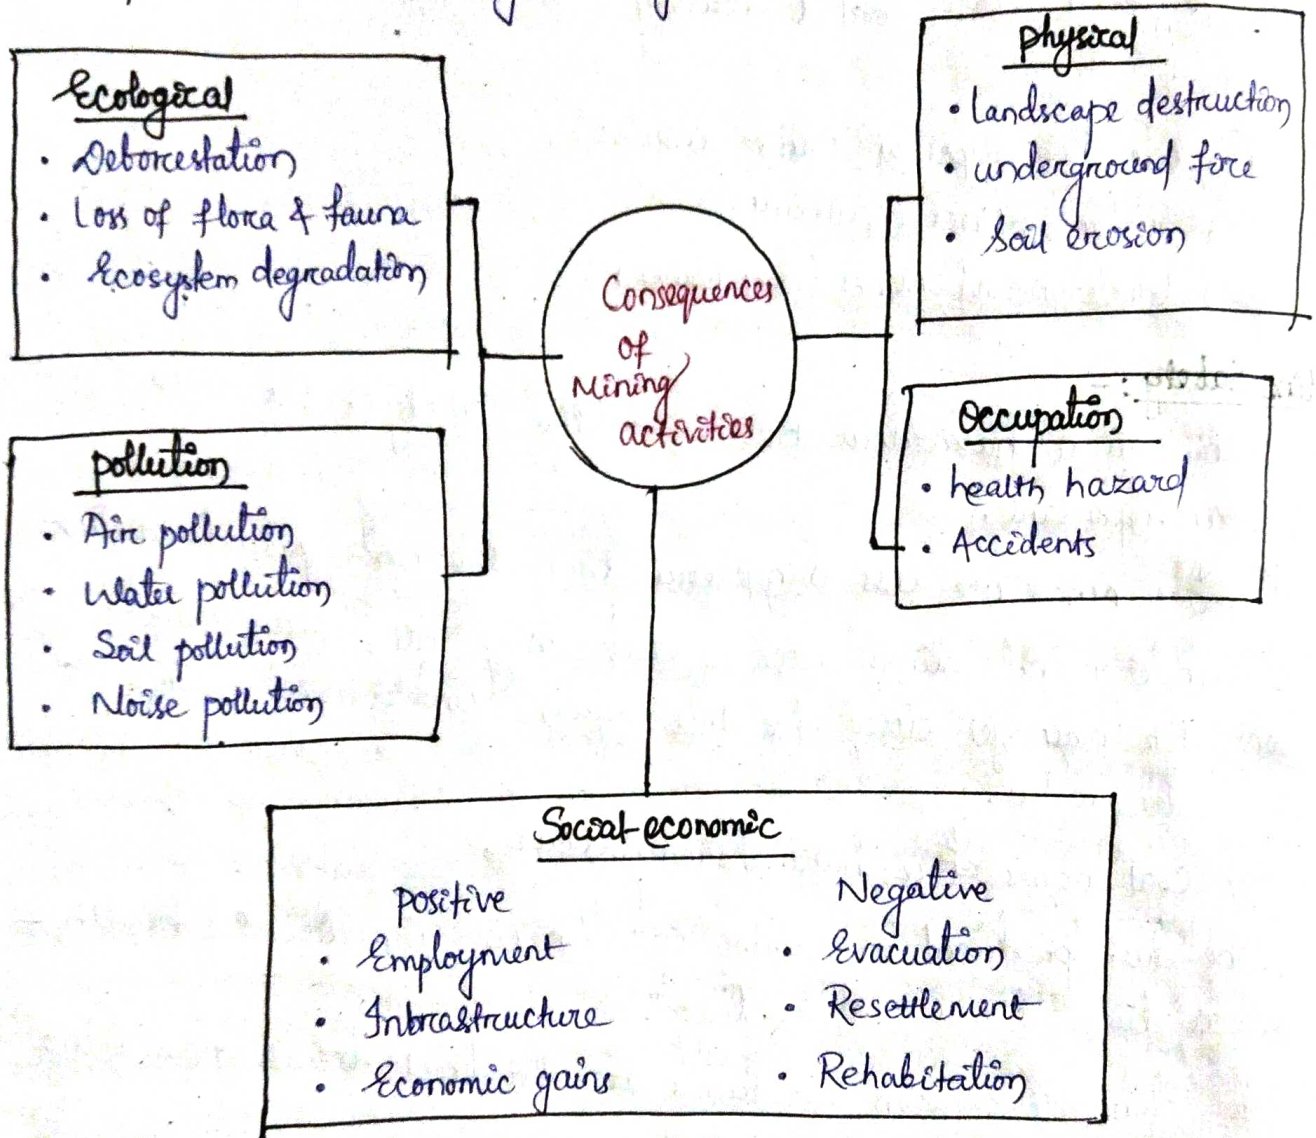 Ecological
• Deforestation
• Loss of flora & fauna
• Ecosystem degradation
Pollution
• Air pollution
• Water pollution
• Soil pollution
• Noise pollution
Consequences
of
Mining
activities
Physical
• landscape destruction
• underground fire
• Soil erosion
Occupation
• health hazard
• Accidents
Social-economic
Positive
• Employment
• Infrastructure
• Economic gains
Negative
• Evacuation
• Resettlement
• Rehabitation